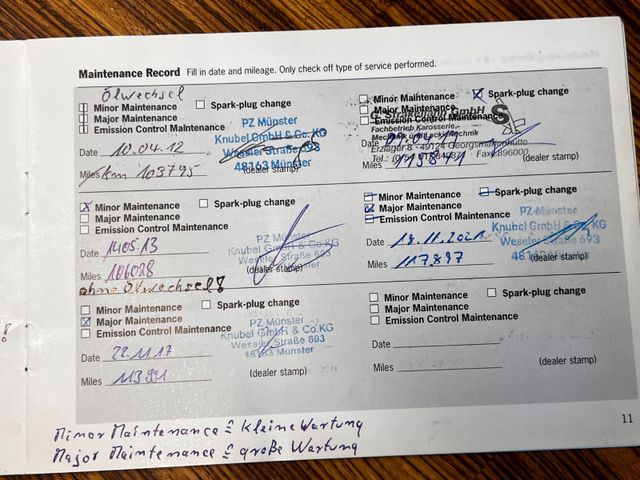 Maintenance Record Fill in date and mileage. Only check off type of service performed.
Ölwechsel
Minor Maintenance Spark-plug change
Major Maintenance
Emission Control Maintenance
PZ Münster
Knubel GmbH & Co. KG
Weseler Straße 693
48163 Münster
Date 10.04.12
Miles km 103795
(dealer stamp)
Minor Maintenance Spark-plug change
Major Maintenance
Emission Control Maintenance
GmbH
Fachbetrieb Karosserie-
Erzlager 8 - 49124 Georgsmarienhütte
Date
Miles
(dealer stamp)
Minor Maintenance Spark-plug change
Major Maintenance
Emission Control Maintenance
PZ Münster
Knubel GmbH & Co.KG
Weseler Straße 693
48163 Münster
Date 14.05.13
Miles 106028
(dealer stamp)
ohne Ölwechsel
Minor Maintenance Spark-plug change
Major Maintenance
Emission Control Maintenance
PZ Münster
Knubel GmbH & Co.KG
Weseler Straße 693
Date 18.11.2021
Miles 117.897
(dealer stamp)
Minor Maintenance Spark-plug change
Major Maintenance
Emission Control Maintenance
PZ Münster
Knubel GmbH & Co.KG
Weseler Straße 693
48163 Münster
Date 22.11.17
Miles
(dealer stamp)
Minor Maintenance Spark-plug change
Major Maintenance
Emission Control Maintenance
Date
Miles
(dealer stamp)
11
Minor Maintenance ≙ kleine Wartung
Major Maintenance ≙ große Wartung